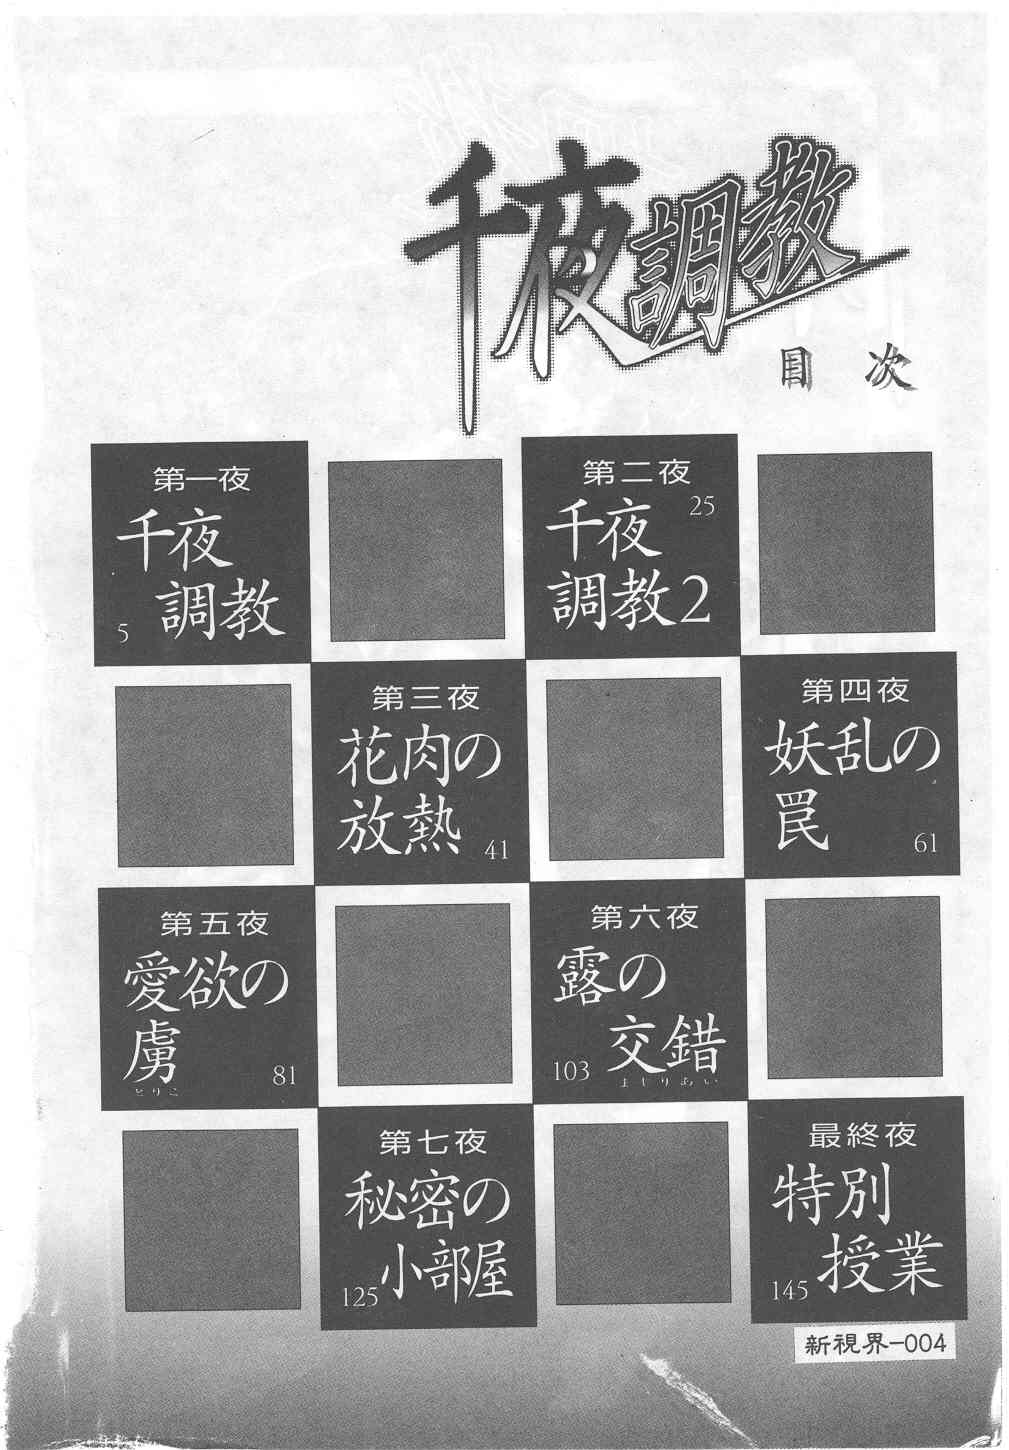 千夜調教
目次
第一夜
千夜
調教
5
第二夜
25
千夜
調教2
第三夜
花肉の
放熱
41
第四夜
妖乱の
罠
61
第五夜
愛欲の
虜
とりこ
81
第六夜
露の
交錯
まじりあい
103
第七夜
秘密の
小部屋
125
最終夜
特別
授業
145
新視界-004